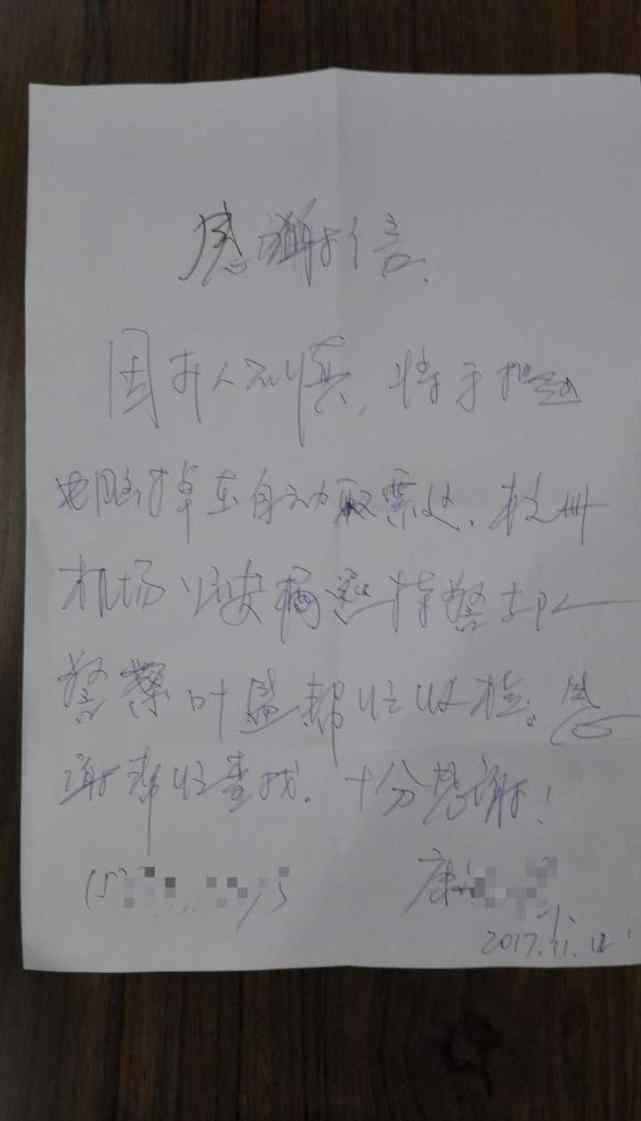 感谢信
因本人不慎,将手提
电脑掉在自动取票处,杭州
机场公安特警
警察叶盛帮忙收捡。感
谢帮忙查找。十分感谢!
15
康
2017.11.12